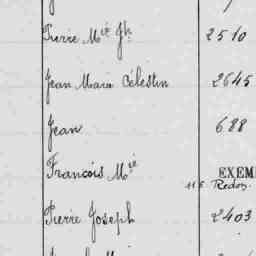 Pierre Mie Jh 2510
Jean Marie Célestin 2645
Jean 688
François Mie EXEM
115 Redon.
Pierre Joseph 2403